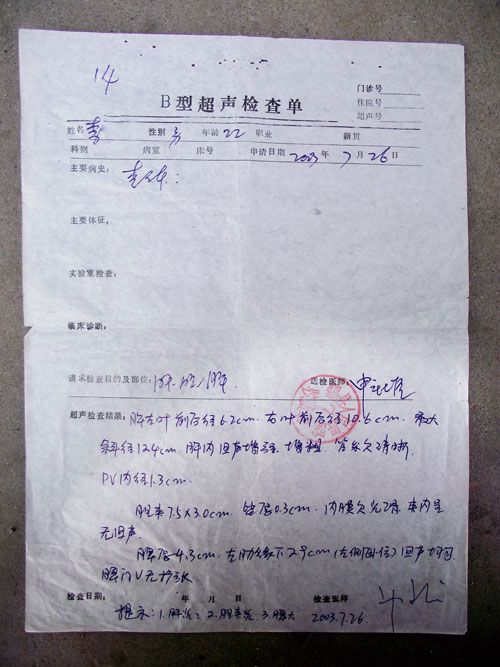 14
门诊号
B型超声检查单
住院号
超声号
姓名 李 性别 男 年龄 22 职业 籍贯
科别 病室 床号 申请日期 2003 年 7 月 26 日
主要病史:
主要体征:
实验室检查:
临床诊断:
请求检查目的及部位: 肝.胆.脾 送检医师:
超声检查结果: 肝左叶前后径6.2cm. 右叶前后径10.6cm. 最大
斜径12.4cm. 肝内回声增强. 增粗. 管系欠清晰.
PV内径1.3cm.
胆囊7.5×3.0cm. 壁厚0.3cm. 内膜欠光滑. 囊内呈
无回声.
脾厚4.3cm. 左肋缘下2.9cm(左侧卧位) 回声均匀
脾门V无扩张
检查日期: 年 月 日 检查医师
提示: 1.肝炎; 2.胆囊炎. 3.脾大 2003.7.26